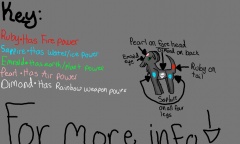 Key:
Ruby-Has Fire power
Saphire-Has Water/ice power
Emerald-Has earth/plant power
Pearl-Has Air power
Dimond-Has Rainbow weapon power
Pearl on Fore head
Dimond on back
Emrald
eye
Ruby on
tail
Saphire
on all four
legs
For More info